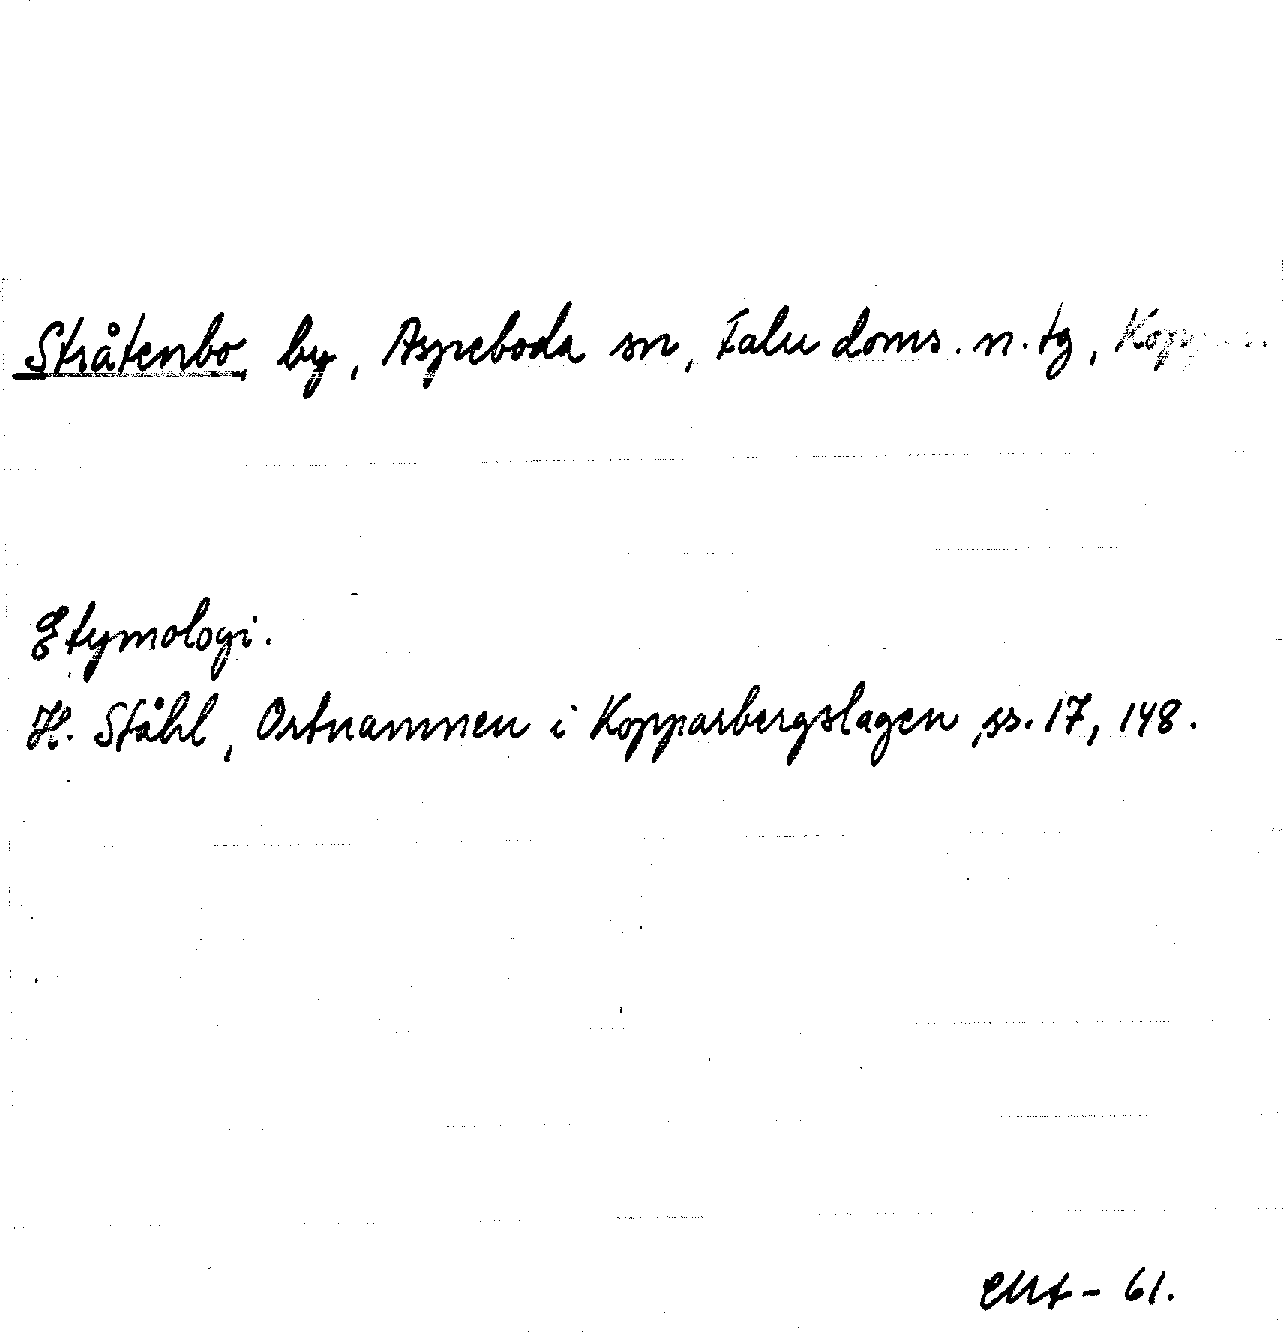 Stråtenbo by, Aspeboda sn, Falu doms. n. tg, Kopp
Etymologi.
H. Ståhl, Ortnamnen i Kopparbergslagen, ss. 17, 148.
- 61.